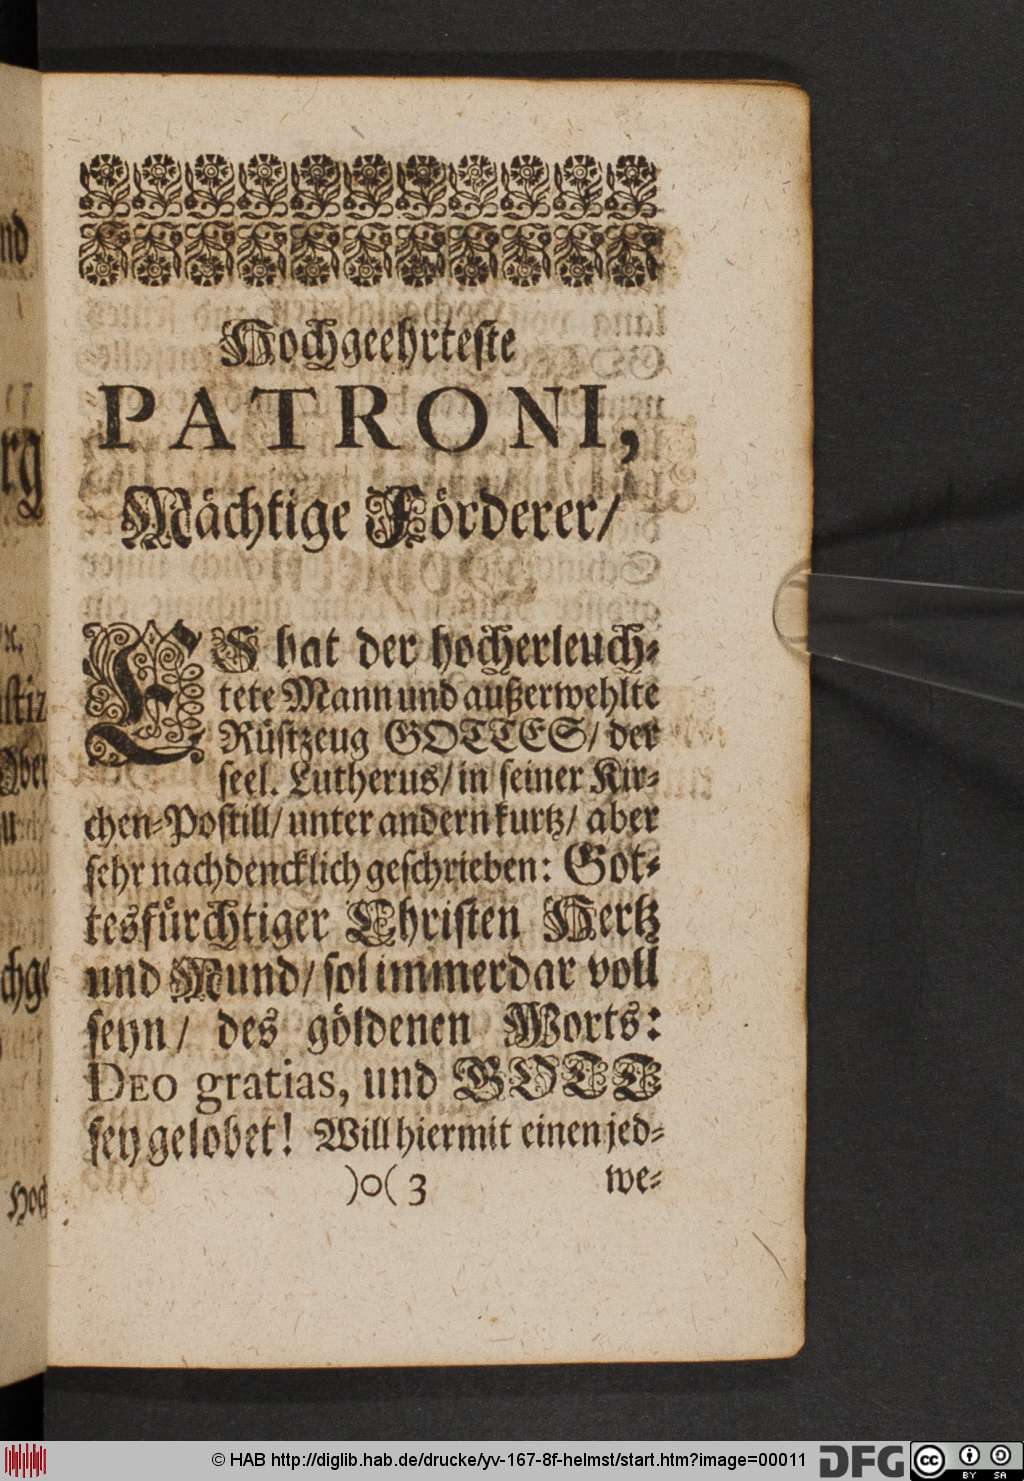 Hochgeehrteste
PATRONI,
Mächtige Förderer/
ES hat der hocherleuch⸗
tete Mann und außerwehlte
Rüstzeug GOTTES/ der
seel. Lutherus/ in seiner Kir⸗
chen⸗Postill/ unter andern kurtz/ aber
sehr nachdencklich geschrieben: Got⸗
tesfürchtiger Christen Hertz
und Mund/ sol immerdar voll
seyn/ des göldenen Worts:
DEO gratias, und GOTT
sey gelobet! Will hiermit einen jed⸗
)o( 3 we⸗
nd
rg
x.
stiz
Ober
chge
Hoch
© HAB http://diglib.hab.de/drucke/yv-167-8f-helmst/start.htm?image=00011
DFG
cc
BY SA